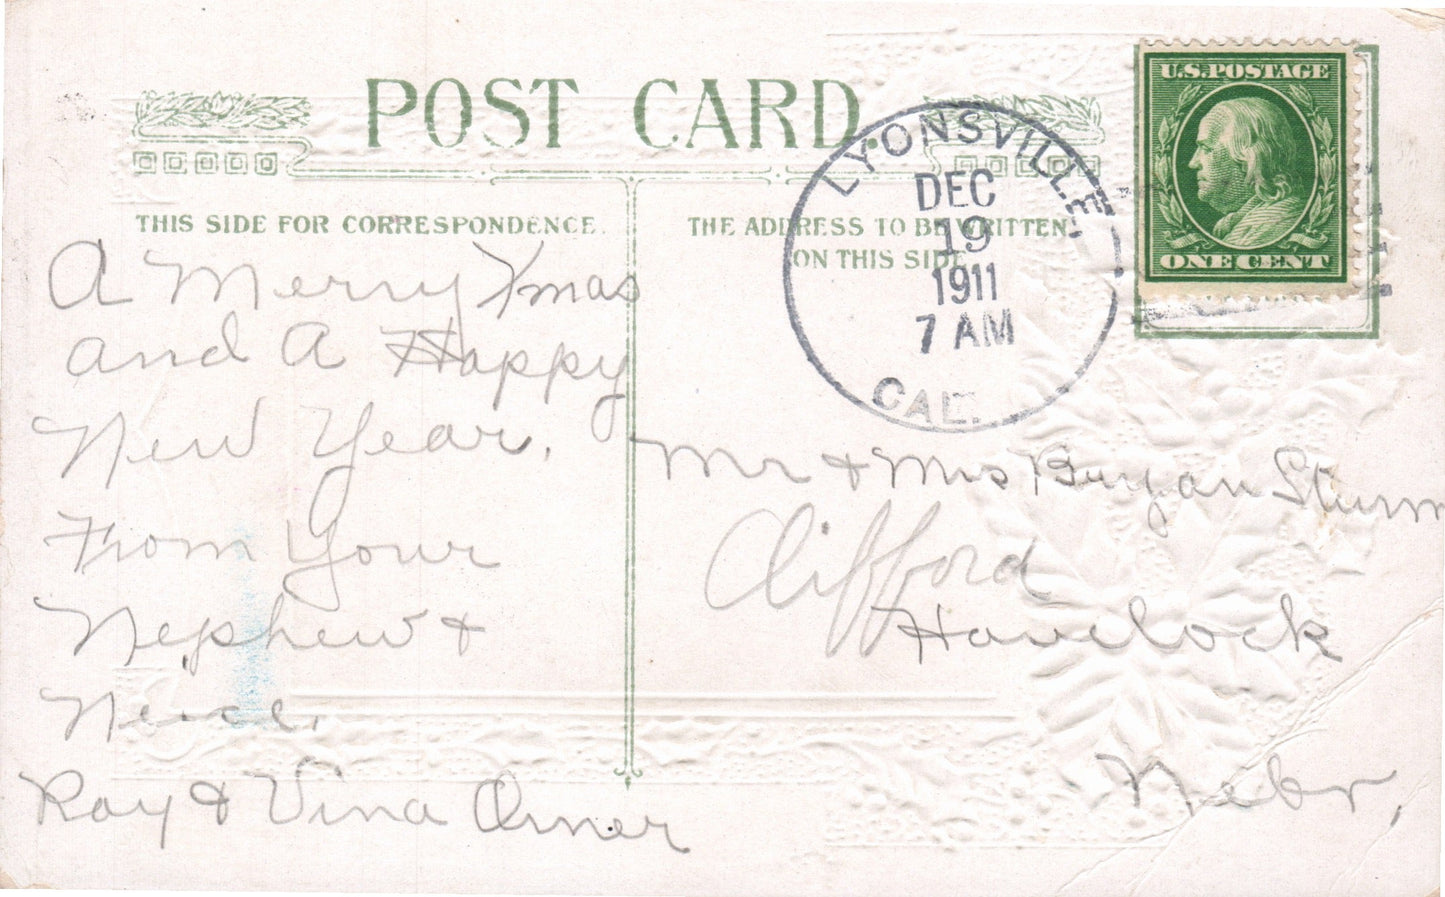 POST CARD.
THIS SIDE FOR CORRESPONDENCE.
A Merry Xmas
and A Happy
New Year,
From Your
Nephew &
Neice,
Ray & Vina Orner
THE ADDRESS TO BE WRITTEN
ON THIS SIDE
LYONSVILLE,
DEC
19
1911
7 AM
CAL.
U.S. POSTAGE
ONE CENT
Mr & Mrs Bryan Sturm
Clifford
Havelock
Nebr,